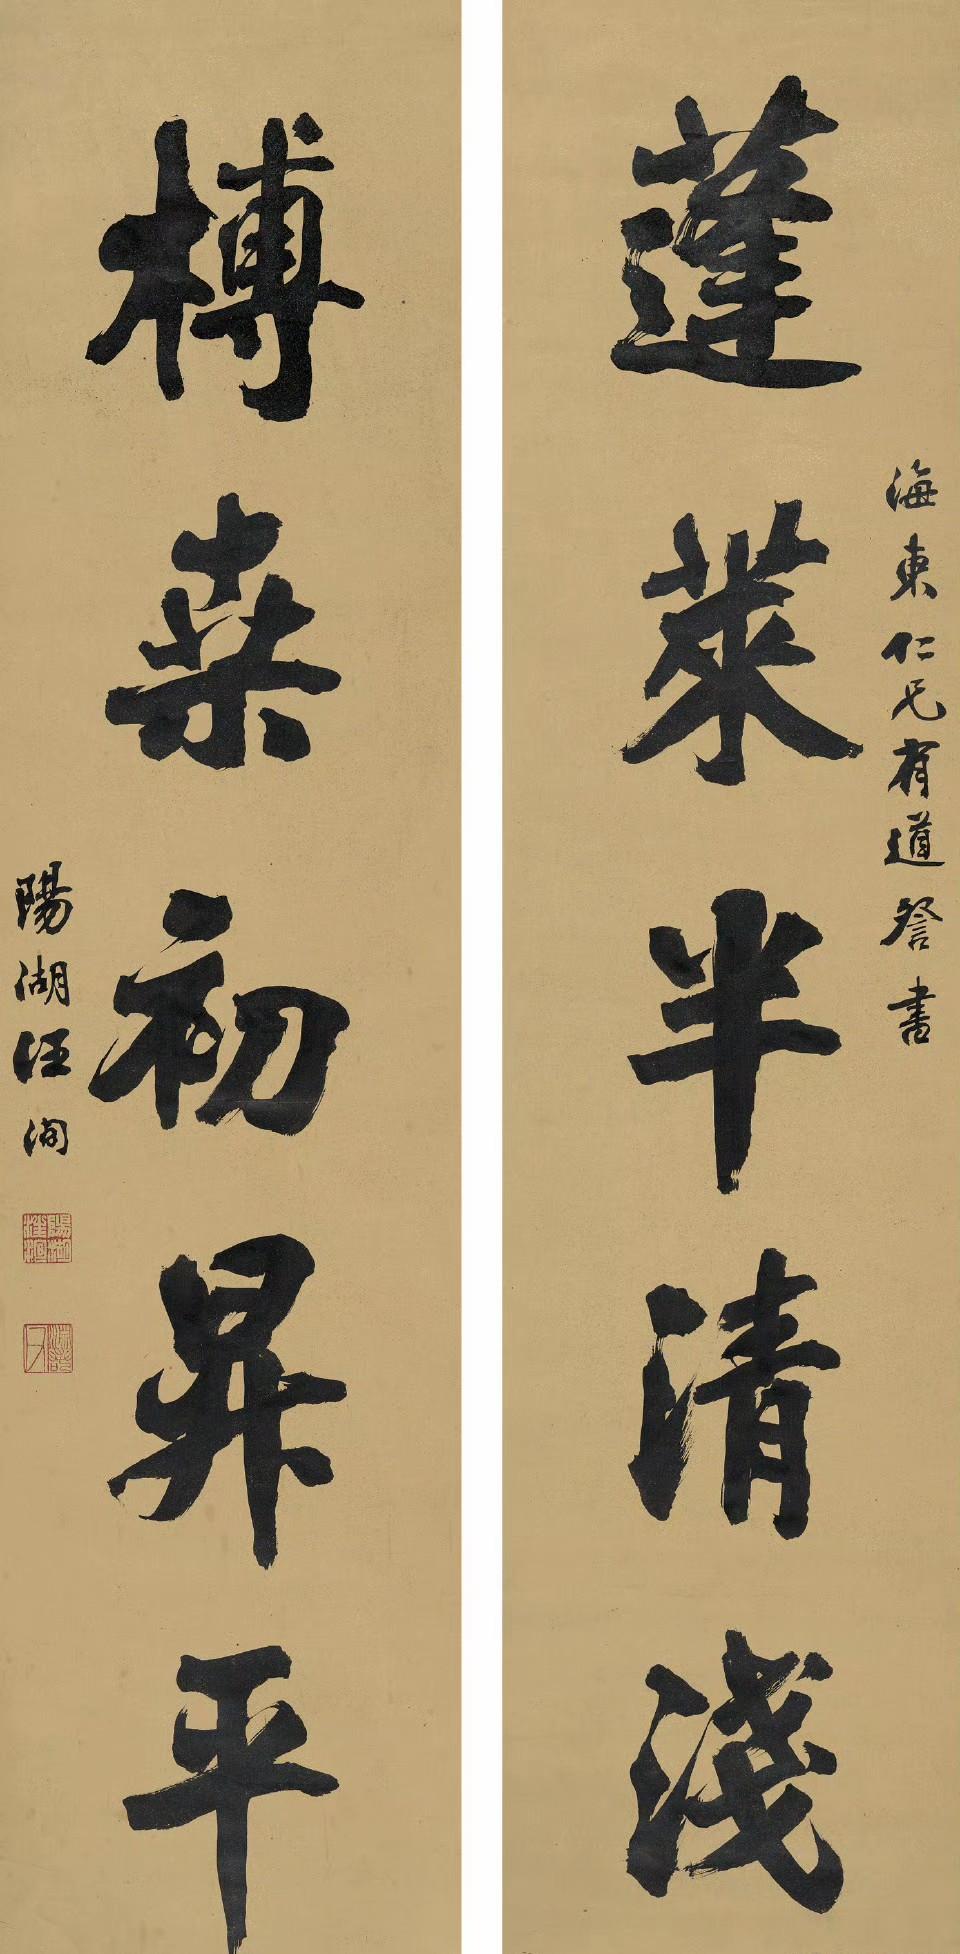 海東仁兄有道詧書
蓬萊半清淺
榑桒初昇平
陽湖汪洵